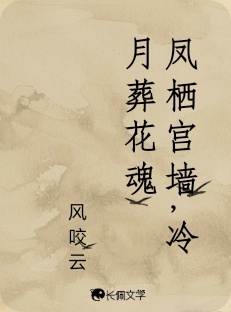 凤栖宫墙，冷
月葬花魂
风咬云
长佩文学